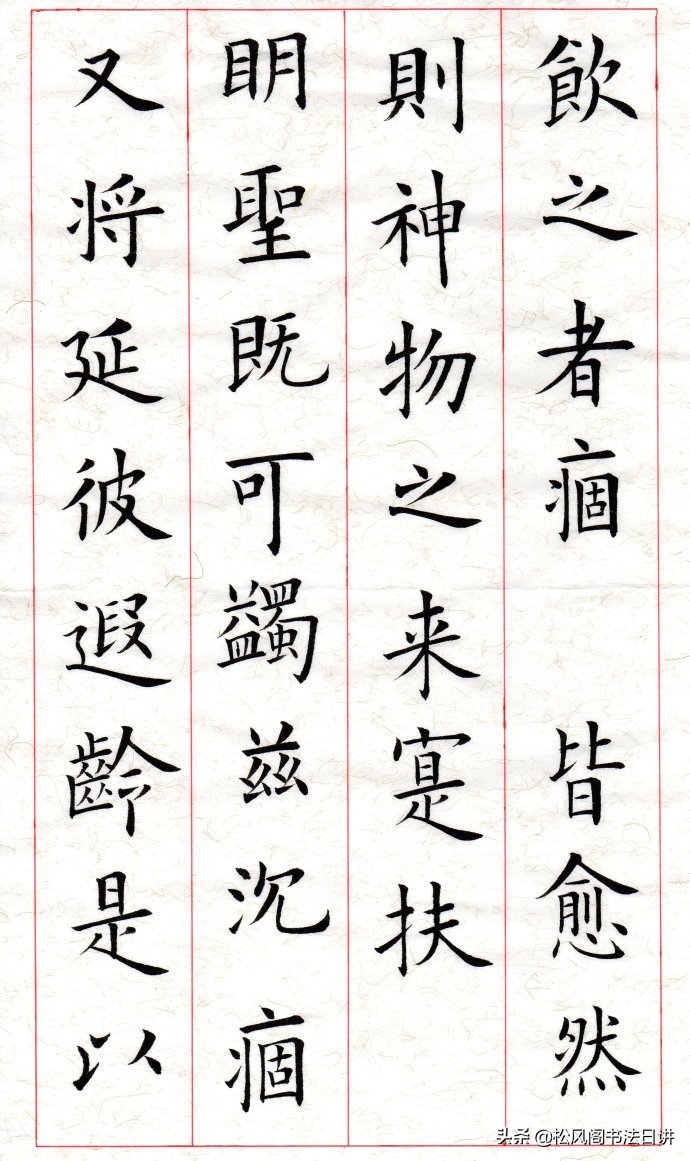 飲之者痼 皆愈然
則神物之来寔扶
明聖既可蠲兹沉痼
又将延彼遐齡是以
头条 @松风阁书法日讲